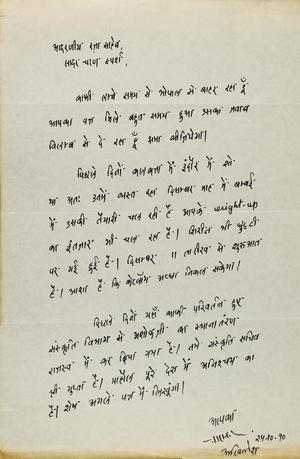 आदरणीय रज़ा साहेब,
सादर चरण स्पर्श,
काफी लम्बे समय से भोपाल से बाहर रहा हूँ
आपका पत्र मिले बहुत समय हुआ उसका जवाब
विलम्ब से दे रहा हूँ क्षमा कीजियेगा।
पिछले दिनों कलकत्ता में इंदौर में शो
था अतः उनमें व्यस्त रहा दिसम्बर माह में बम्बई
में उसकी तैयारी चल रही है आपके wright-up
का इंतज़ार भी चल रहा है। शिरीश भी छुट्टी
पर गई हुई है। दिसम्बर 11 तारीख से शुरुआत
है। आशा है कि केटलॉग अच्छा निकल सकेगा।
पिछले दिनों यहाँ काफी परिवर्तन हुए
संस्कृति विभाग से अशोकजी का स्थानांतरण
राजस्व में कर दिया गया है। नये संस्कृति सचिव
श्री गुप्ता हैं। माहौल पूरे देश में अनिश्चय का
है। शेष अगले पत्र में लिखूंगा।
आपका
अखिलेश
24.10.90